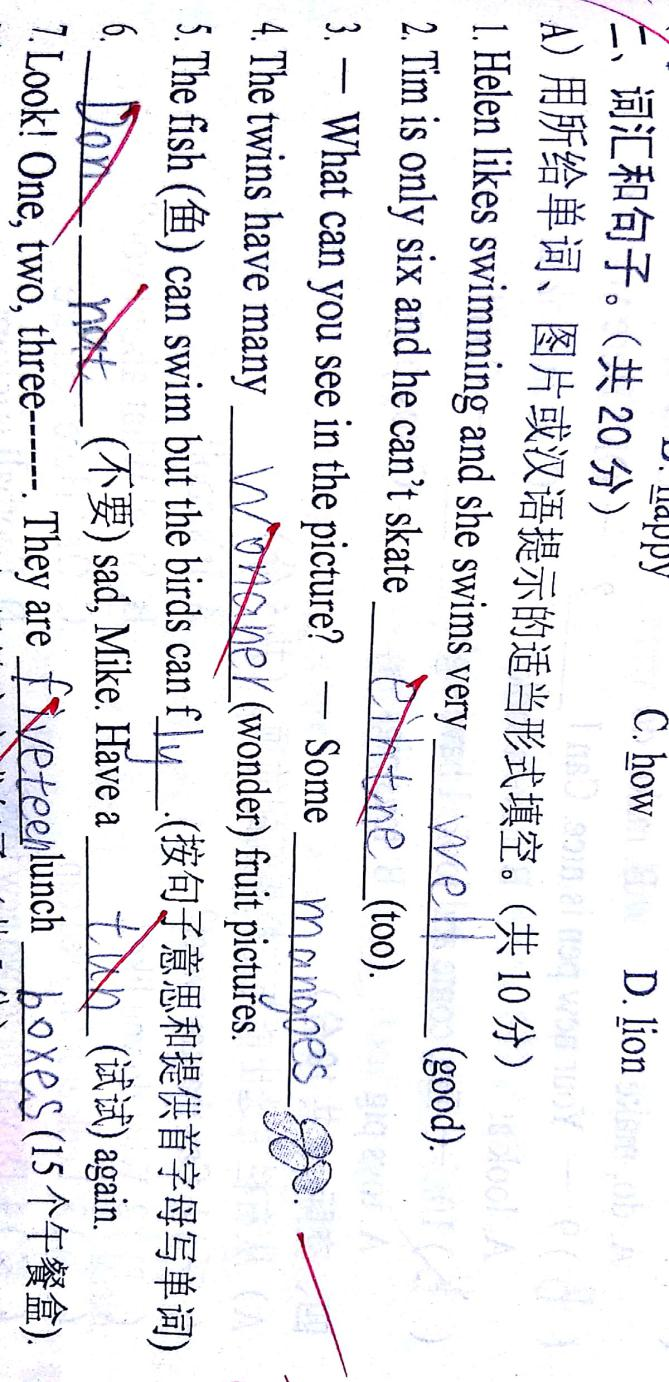 happy C. how D. lion
二、词汇和句子。（共 20 分）
A）用所给单词、图片或汉语提示的适当形式填空。（共 10 分）
1. Helen likes swimming and she swims very well (good).
2. Tim is only six and he can't skate (too).
3. — What can you see in the picture? — Some mangoes.
4. The twins have many (wonder) fruit pictures.
5. The fish (鱼) can swim but the birds can fly. (按句子意思和提供首字母写单词)
6. Don not (不要) sad, Mike. Have a (试试) again.
7. Look! One, two, three------. They are fiveteen lunch boxes (15 个午餐盒).